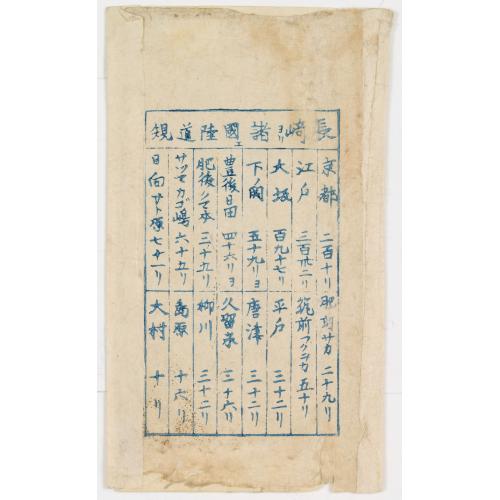 長崎ヨリ諸國エ陸道規
京都 二百十リ 肥前サカ 二十九リ
江戸 三百卅二リ 筑前フクヲカ 五十リ
大坂 百九十七リ 平戸 三十二リ
下ノ関 五十九リヨ 唐津 三十二リ
豊後日田 四十六リヨ 久留米 三十六リ
肥後クマ本 三十五リ 柳川 三十二リ
サツマカゴ嶋 六十五リ 島原 十六リ
日向サト原 七十一リ 大村 十リ